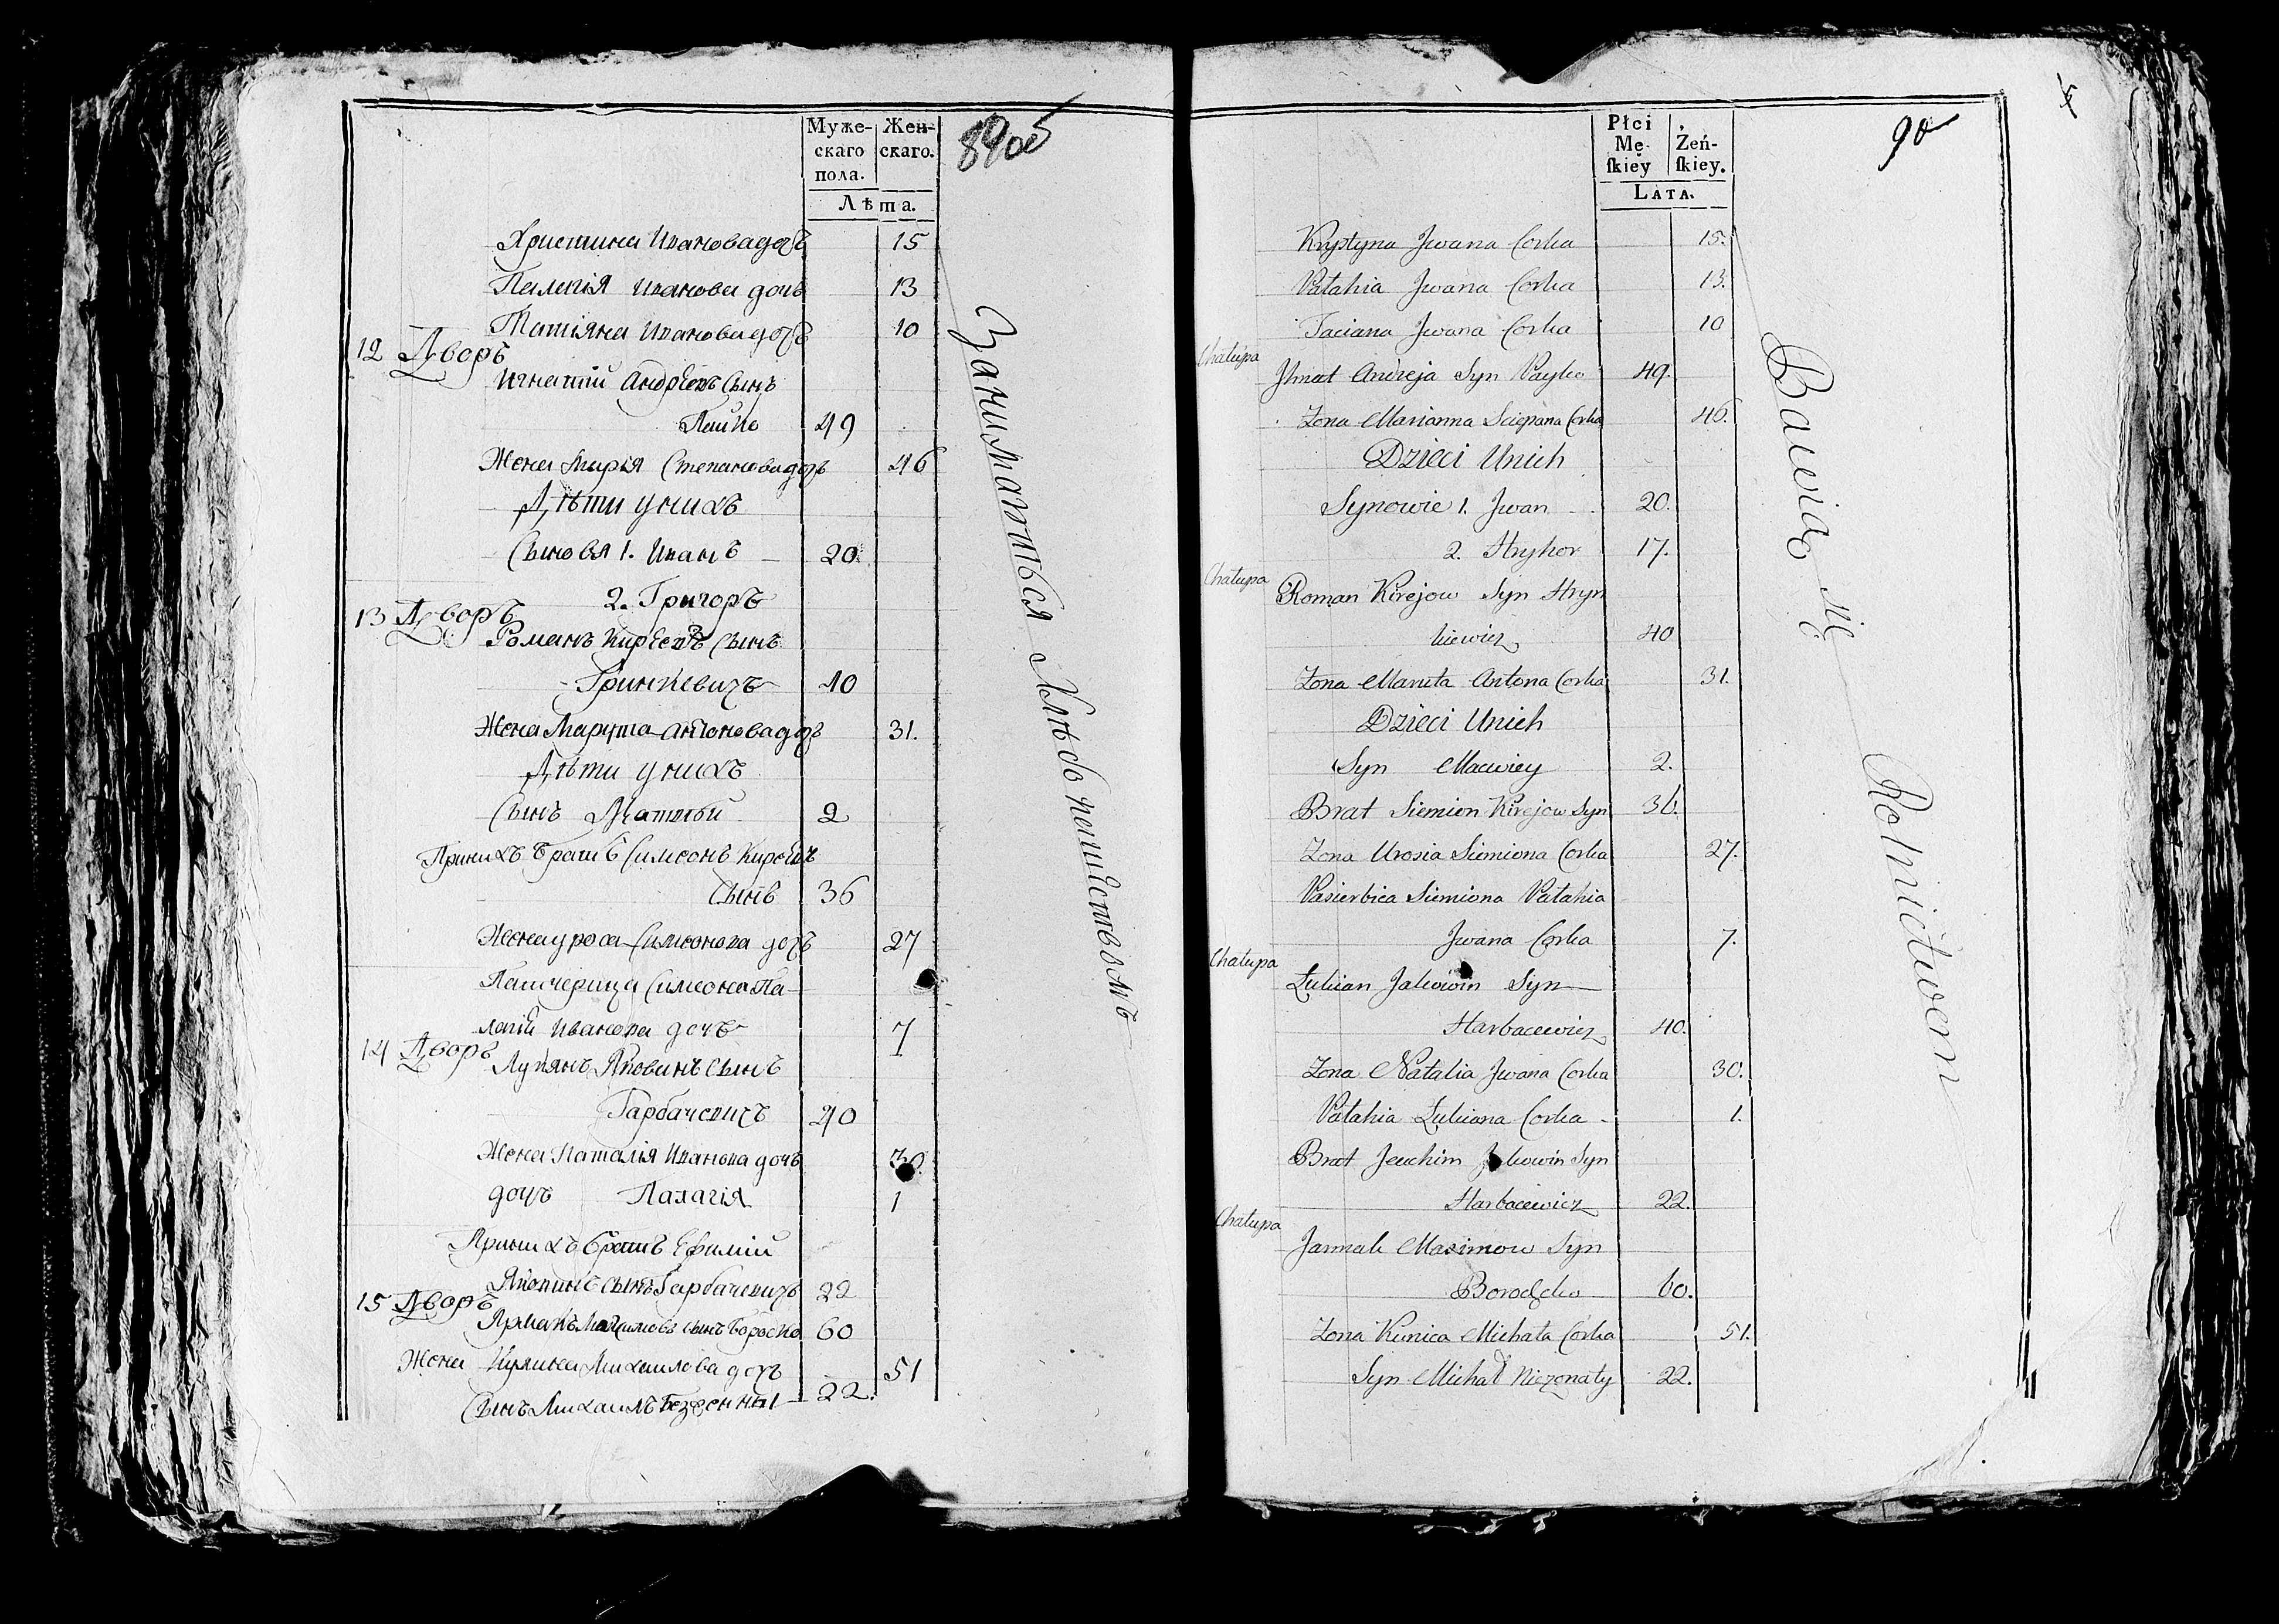 Муже-
скаго
пола.
Жен-
скаго.
Лѣта.
89об
Христина Иванова дочь 15
Палагія Иванова дочь 13
Татіяна Иванова дочь 10
12 Дворъ
Игнатій Андрѣевъ Сынъ
Пайко 49
Жена Марія Степанова дочь 46
Дѣти у нихъ
Сыновя 1. Иванъ 20
2. Григоръ
13 Дворъ
Романъ Кирѣевъ Сынъ
Гринкевичъ 40
Жена Марута Антонова дочь 31.
Дѣти у нихъ
Сынъ Матвѣй 2
При нихъ братъ Симеонъ Кирѣевъ
Сынъ 36
Жена Уроса Симеонова дочь 27
Пашчерица Симеона Па-
лагіи Иванова дочь 7
14 Дворъ
Лукянъ Яковинъ Сынъ
Гарбачевичъ 40
Жена Наталія Иванова дочь 30.
дочъ Палагія 1
При нихъ братъ Ефимій
Яковинъ сынъ Гарбачевичъ 22
15 Дворъ
Ярмакъ Максимовъ сынъ Бороско 60
Жена Кулина Михаилова дочь 51
Сынъ Михаилъ 22.
Занимаются Хлѣбопашествомъ
Płci
Mę-
skiey
Żeń-
skiey.
LATA.
90
5
Krystyna Jwana Corka 15.
Pałahia Jwana Corka 13.
Taciana Jwana Corka 10
Chałupa
Jhnat Andreja Syn Payko 49.
Zona Marianna Sciepana Corka 46.
Dzieci Unich
Synowie 1. Jwan 20.
2. Hryhor 17.
Chałupa
Roman Kirejow Syn Hryn
kiewicz 40
Zona Maruta Antona Corka 31.
Dzieci Unich
Syn Maciviey 2.
Brat Siemion Kirejow Syn 36.
Zona Urosia Siemiona Corka 27.
Pasierbica Siemiona Pałahia
Jwana Corka 7.
Chałupa
Łukian Jakowin Syn
Harbacewicz 40.
Zona Natalia Jwana Corka 30.
Pałahia Łukiana Corka 1.
Brat Jeuchim Jakowin Syn
Harbacewicz 22.
Chałupa
Jarmak Maximow Syn
60.
Zona Kunica Michała Corka 51.
Syn Michał Niezonaty 22.
Bawią się Rolnictwem